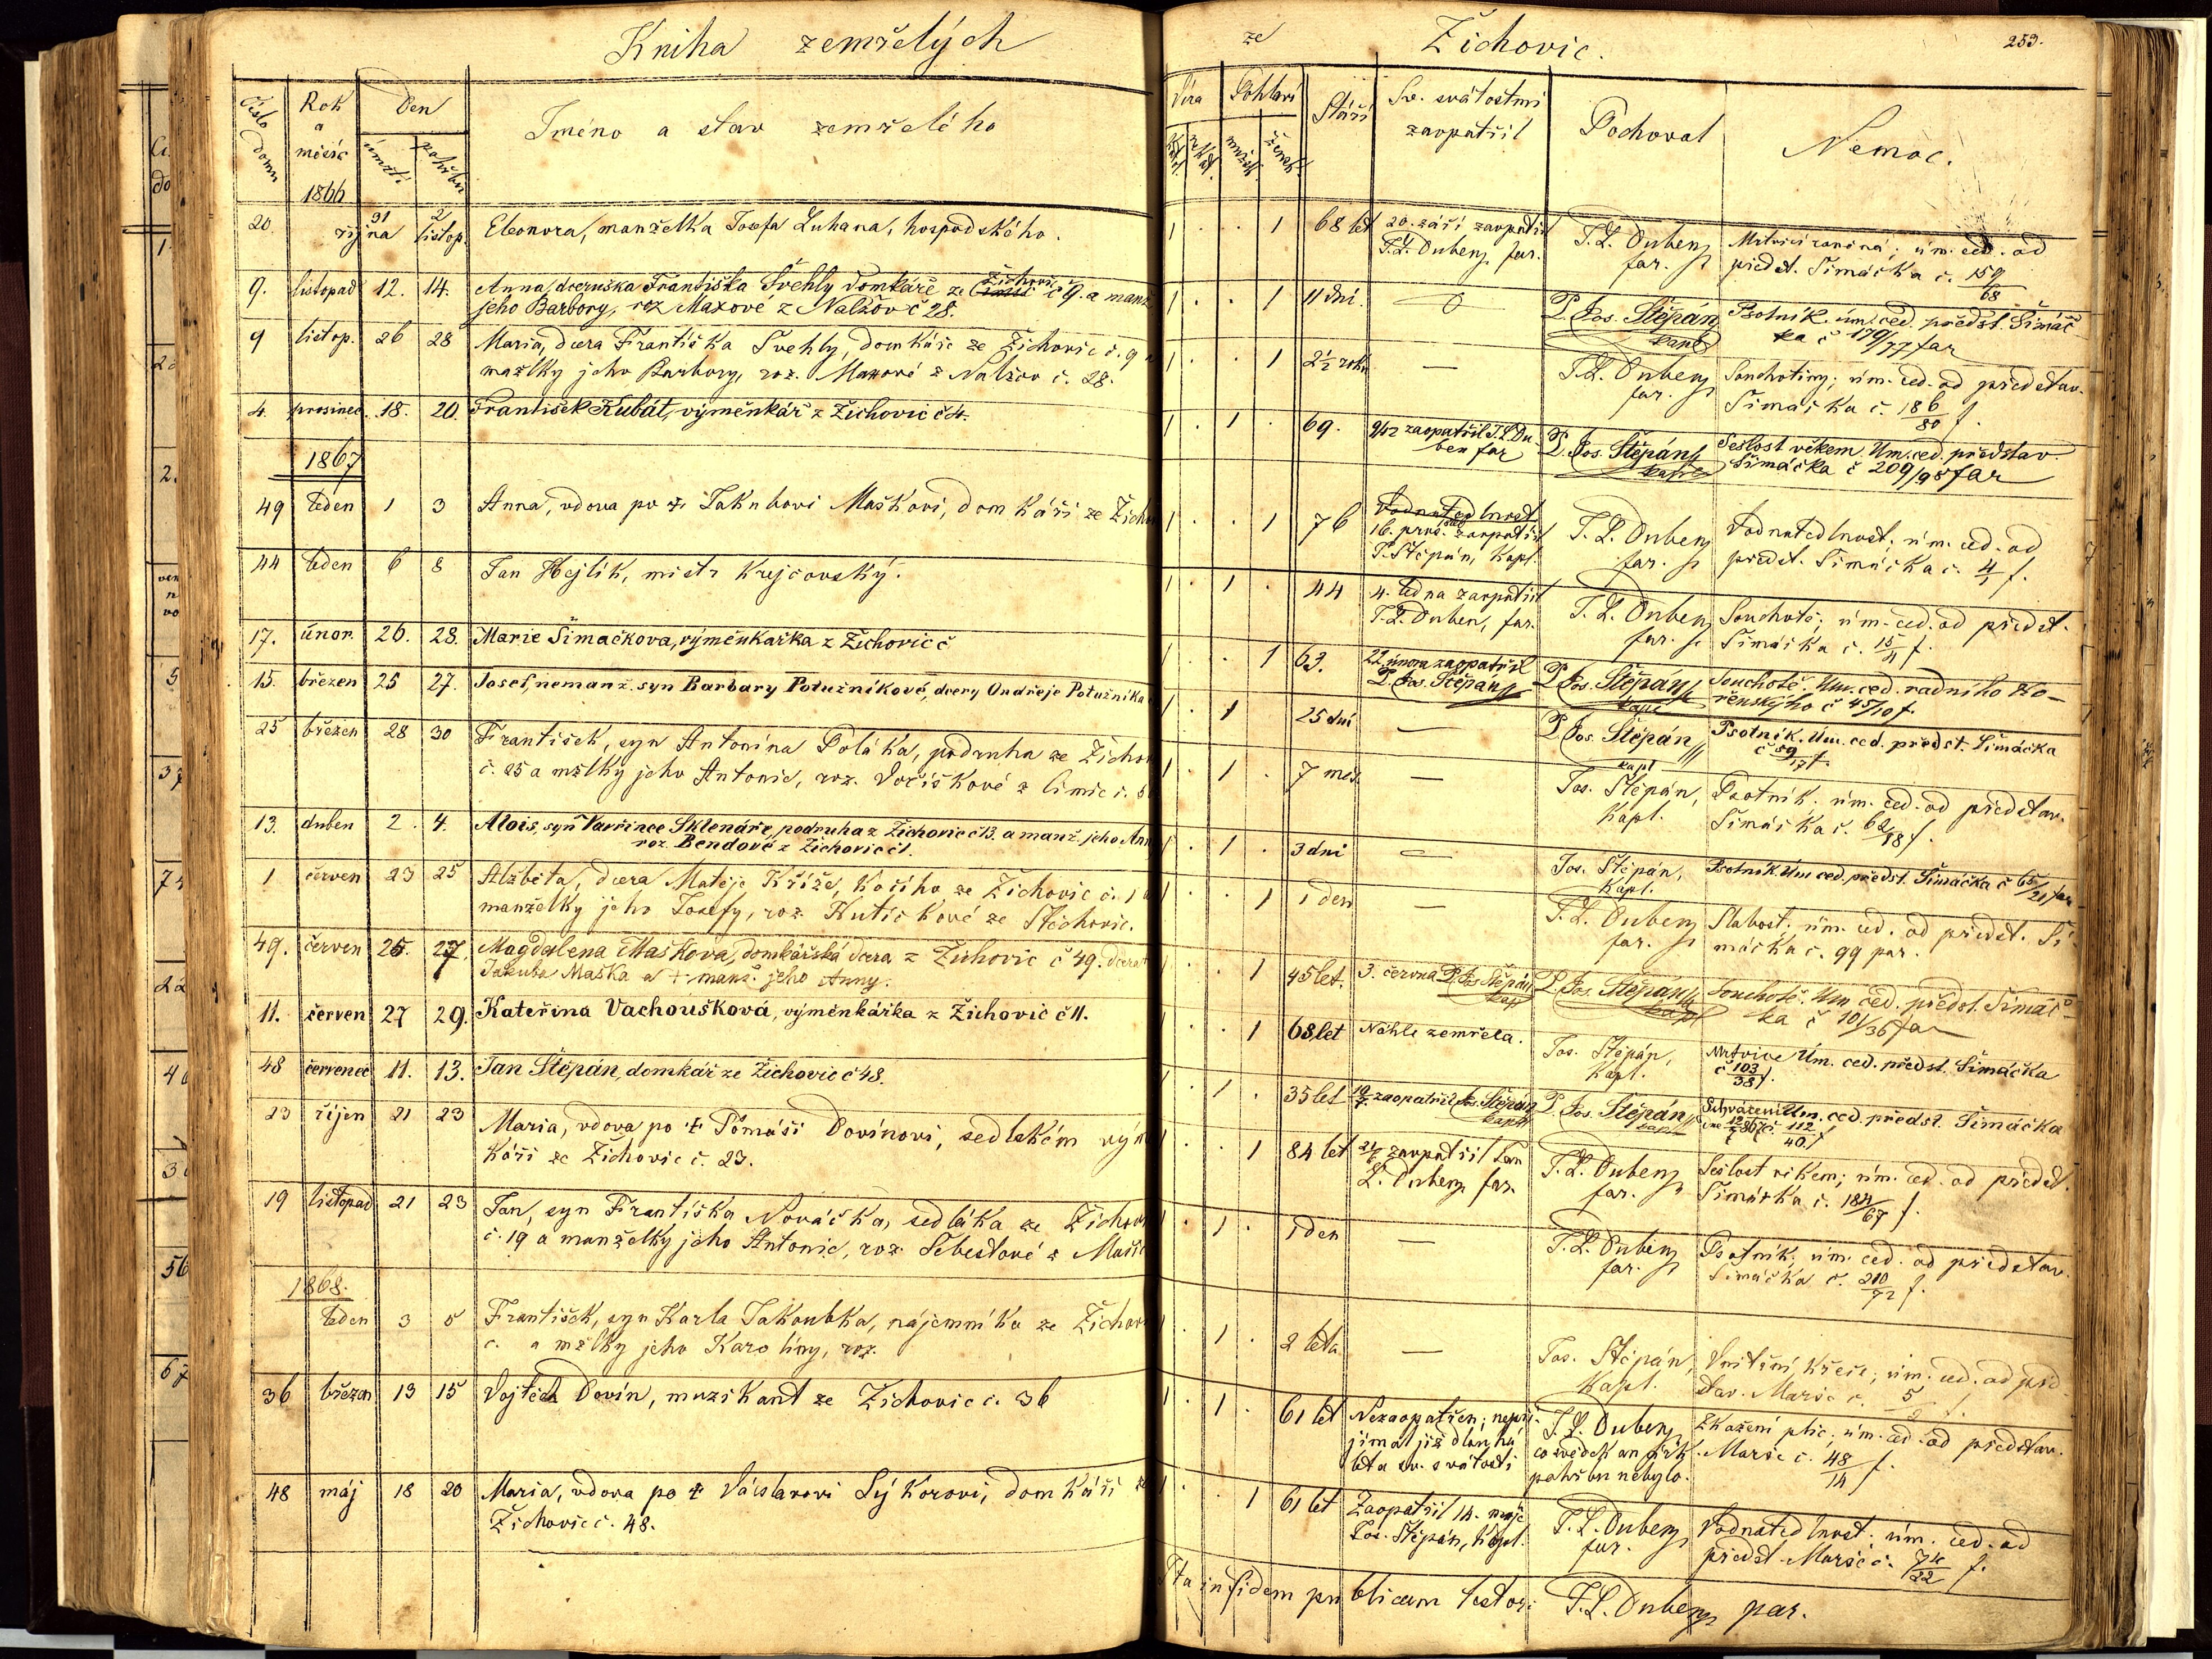 Kniha zemřelých
Číslo domu
Rok a měsíc
Den
úmrtí
pohřbu
Jméno a stav zemřelého
1866
20. října 31 2 listop. Eleonora, manželka Josefa Luhana, hospodského.
9. listopad 12. 14. Anna, dceruška Františka Švehly domkáře ze Žichovic č 9. a manž
jeho Barbory, roz Maxové z Nalžov č 28.
9 listop. 26 28 Maria, dcera Františka Švehly, domkáře ze Žichovic č. 9 a
mažlky jeho Barbory, roz. Maxové z Nalžov č. 28.
4. prosinec. 18. 20. František Kubát, výměnkář z Žichovic č 4.
1867
49 leden 1 3 Anna, vdova po † Jakubovi Maškovi, domkáři ze Žicho
44 leden 6 8 Jan Hejlík, mistr krejčovský.
17. únor. 26. 28. Marie Šimáčkova, výměnkařka z Žichovic č
15. březen 25 27. Josef, nemanž. syn Barbary Potužníkové, dcery Ondřeje Potužníka
25 březen 28 30 František, syn Antonína Poláka, podruha ze Žicho
č. 25 a mžlky jeho Antonie, roz. Voříškové z Čimic č. 5
13. duben 2. 4. Alois, syn Vavřince Sklenáře, podruha z Žichovic č 13. a manž. jeho Ann
roz. Bendové z Žichovic č 1.
1 červen 23 25 Alžběta, dcera Matěje Kříže, kočího ze Žichovic č. 1 a
manželky jeho Josefy, roz. Kutičkové ze Stěchovic.
49. červen 25. 27. Magdalena Maškova, domkářská dcera z Žichovic č 49. dcera †
Jakuba Maška a † manž. jeho Anny.
11. červen 27 29. Kateřina Vachoušková, výměnkářka z Žichovic č 11.
48 červenec 11. 13. Jan Štěpán, domkář ze Žichovic č 48.
23 říjen 21 23 Maria, vdova po † Tomáši Dovínovi, sedlském výmě
káři ze Žichovic č. 23.
19 listopad 21 23 Jan, syn Františka Nováčka, sedláka ze Žichov
č. 19 a manželky jeho Antonie, roz. Šebestové z
1868.
leden 3 5 František, syn Karla Jakoubka, nájemníka ze Žichov
č. a mžlky jeho Karolíny, roz.
36 březen 13 15 Vojtěch Dovín, muzikant ze Žichovic č. 36
48 máj 18 20 Maria, vdova po † Václavovi Sýkorovi, domkáři ze
Žichovic č. 48.
ze Žichovic. 253.
Víra
Pohlaví
mužsk.
žensk.
Stáří
Sv. svátostmi zaopatřil
Pochoval
Nemoc.
1 . . 1 68 let 20. září zaopatřil T. L. Duben, far. T. L. Duben far. Mrtvicí raněná; úm. ced. od
předst. Šimáčka č. 159/68
1 . . 1 11 dní 0 P. Jos. Štěpán kapl Psotník. úm. ced. předst. Šimáč
ka č 179/77 far
1 . . 1 2½ roku — T. L. Duben far. Souchotiny; úm. ced. od představ.
Šimáčka č. 186/80 f.
1 . 1 . 69. 9/12 zaopatřil T. L. Duben far P. Jos. Štěpán kapl Sešlost věkem. Úm. ced. představ.
Šimáčka č 209/98 far
1 . . 1 76 Vodnatedlnost
16. pros. zaopatřil
P. Štěpán, kapl. T. L. Duben far. Vodnatedlnost. úm. ced. od
předst. Šimáčka č. 4/1 f.
1 . 1 . 44 4. ledna zaopatřil
T. L. Duben, far. T. L. Duben far. Souchotě; úm. ced. od předst.
Šimáčka č. 15/4 f.
1 . . 1 63. 22 února zaopatřil
P. Jos. Štěpán P. Jos. Štěpán kapl Souchotě. Úm. ced. radního Ko-
řenského č 45/10 f.
1 . 1 25 dní — P. Jos. Štěpán kapl Psotník. Úm. ced. předst. Šimáčka
č 59/17 f.
1 . 1 . 7 měs. — Jos. Štěpán, kapl. Psotník. úm. ced. od představ.
Šimáčka č. 62/18 f.
1 . 1 . 3 dni — Jos. Štěpán, kapl. Psotník. Úm ced. předst. Šimáčka č 65/21 far
1 . . 1 1 den — T. L. Duben far. Slabost; úm. ced. od předst. Ši
máčka č. 99 par.
. . 1 45 let. 3. června P. Jos Štěpán kap P. Jos. Štěpán kapl Souchotě. Úm ced. předst. Šimáč-
ka č 101/36 far
. . 1 68 let Náhle zemřela. Jos. Štěpán, kapl. Mrtvice Úm. ced. předst. Šimáčka
č 103/38 f.
1 . 1 . 35 let 10/7. zaopatřil Jos. Štěpán kapl P. Jos. Štěpán kapl Úm. ced. předst. Šimáčka
12/7 867 č. 112/40 f
1 . . 1 84 let zaopatřil Jan
L. Duben far. T. L. Duben far. Sešlost věkem; úm. ced. od předst.
Šimáčka č. 184/67 f.
1 . 1 . 1 den — T. L. Duben far. Psotník; úm. ced. od představ.
Šimáčka č. 210/72 f.
1 . 1 . 2 leta — Jos. Štěpán, kapl. Vnitřní křeče; úm. ced. od před
stav. Marše č. 5/2 f.
1 . 1 . 61 let Nezaopatřen; nepři-
jímal již dlouhá
léta sv. svátosti T. L. Duben
pohřbu nebylo. Zkažení plic; úm. ced. od představ.
Marše č. 48/14 f.
1 . . 1 61 let Zaopatřil 14. máje
Jos. Štěpán, kapl. T. L. Duben far. Vodnatedlnost. úm. ced. od
předst. Marše č. 74/22 f.
Ita in fidem publicam testor: T. L. Duben par.